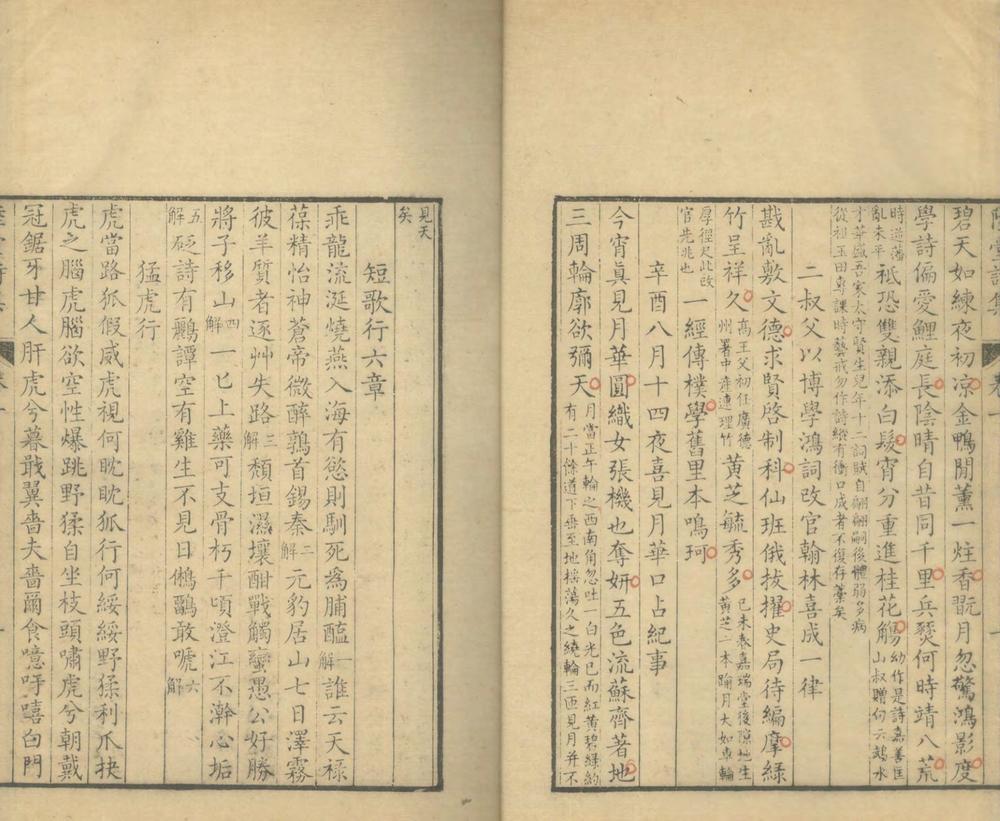 碧天如練夜初凉金鴨閒薰一炷香翫月忽驚鴻影度
學詩偏愛鯉庭長陰晴自昔同千里兵燹何時靖八荒
時逆藩
亂未平祗恐雙親添白髮宵分重進桂花觴幼作是詩嘉善匡
山叔贈句云鷀水
才華盛吾家太守賢生兒年十二詞賦自翩翩嗣後體弱多病
從祖玉田專課時藝戒勿作詩縱有衝口成者不復存藁矣
二叔父以博學鴻詞改官翰林喜成一律
戡亂敷文德求賢啓制科仙班俄拔擢史局待編摩綠
竹呈祥久高王父初任廣德
州署中產連理竹黃芝毓秀多己未春嘉瑞堂後隙地生
黃芝二本踰月大如車輪
厚徑尺此改
官先兆也一經傳樸學舊里本鳴珂
辛酉八月十四夜喜見月華口占紀事
今宵眞見月華圓織女張機也奪妍五色流蘇齊著地
三周輪廓欲彌天月當正午輪之西南角忽吐一白光已而紅黃碧綠約
有二十條道下垂至地搖蕩久之繞輪三匝見月并不
見天
矣
短歌行六章
乖龍流涎燒燕入海有慾則馴死爲脯醢一解誰云天祿
葆精怡神蒼帝微醉鶉首錫秦二解元豹居山七日澤霧
彼羊質者逐艸失路三解頹垣濕壤酣戰觸蠻愚公好勝
將子移山四解一匕上藥可支骨朽千頃澄江不澣心垢
五解砭詩有鸝譚空有雞生不見日鵂鶹敢嗁六解
猛虎行
虎當路狐假威虎視何眈眈狐行何綏綏野猱利爪抉
虎之腦虎腦欲空性爆跳野猱自坐枝頭嘯虎兮朝戴
冠鋸牙甘人肝虎兮暮戢翼嗇夫嗇爾食噫吁嘻白門